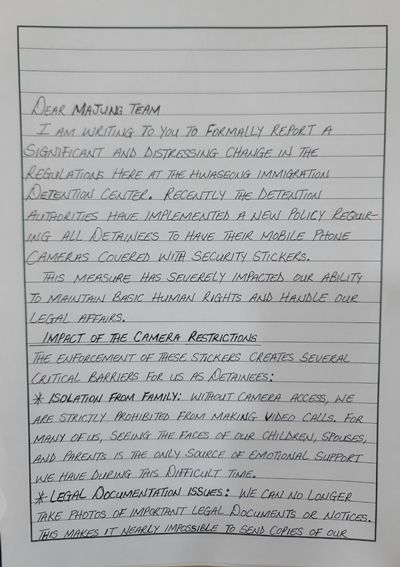 DEAR MAJUNG TEAM
I AM WRITING TO YOU TO FORMALLY REPORT A
SIGNIFICANT AND DISTRESSING CHANGE IN THE
REGULATIONS HERE AT THE HWASEONG IMMIGRATION
DETENTION CENTER. RECENTLY THE DETENTION
AUTHORITIES HAVE IMPLEMENTED A NEW POLICY REQUIR-
ING ALL DETAINEES TO HAVE THEIR MOBILE PHONE
CAMERAS COVERED WITH SECURITY STICKERS.
THIS MEASURE HAS SEVERELY IMPACTED OUR ABILITY
TO MAINTAIN BASIC HUMAN RIGHTS AND HANDLE OUR
LEGAL AFFAIRS.
IMPACT OF THE CAMERA RESTRICTIONS
THE ENFORCEMENT OF THESE STICKERS CREATES SEVERAL
CRITICAL BARRIERS FOR US AS DETAINEES:
* ISOLATION FROM FAMILY: WITHOUT CAMERA ACCESS, WE
ARE STRICTLY PROHIBITED FROM MAKING VIDEO CALLS. FOR
MANY OF US, SEEING THE FACES OF OUR CHILDREN, SPOUSES,
AND PARENTS IS THE ONLY SOURCE OF EMOTIONAL SUPPORT
WE HAVE DURING THIS DIFFICULT TIME.
* LEGAL DOCUMENTATION ISSUES: WE CAN NO LONGER
TAKE PHOTOS OF IMPORTANT LEGAL DOCUMENTS OR NOTICES.
THIS MAKES IT NEARLY IMPOSSIBLE TO SEND COPIES OF OUR